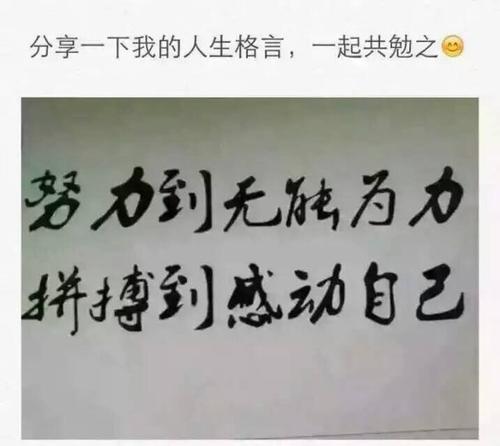 分享一下我的人生格言，一起共勉之😊
努力到无能为力
拼搏到感动自己